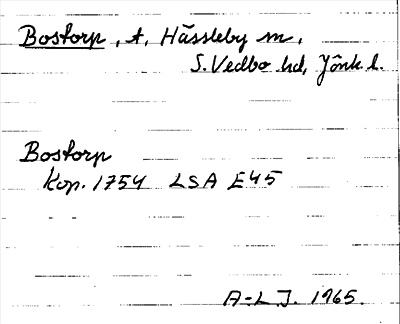 Bostorp, t, Hässleby sn,
S. Vedbo hd, Jönk. l.
Bostorp
Kop. 1754 LSA E45
A-L J. 1965.